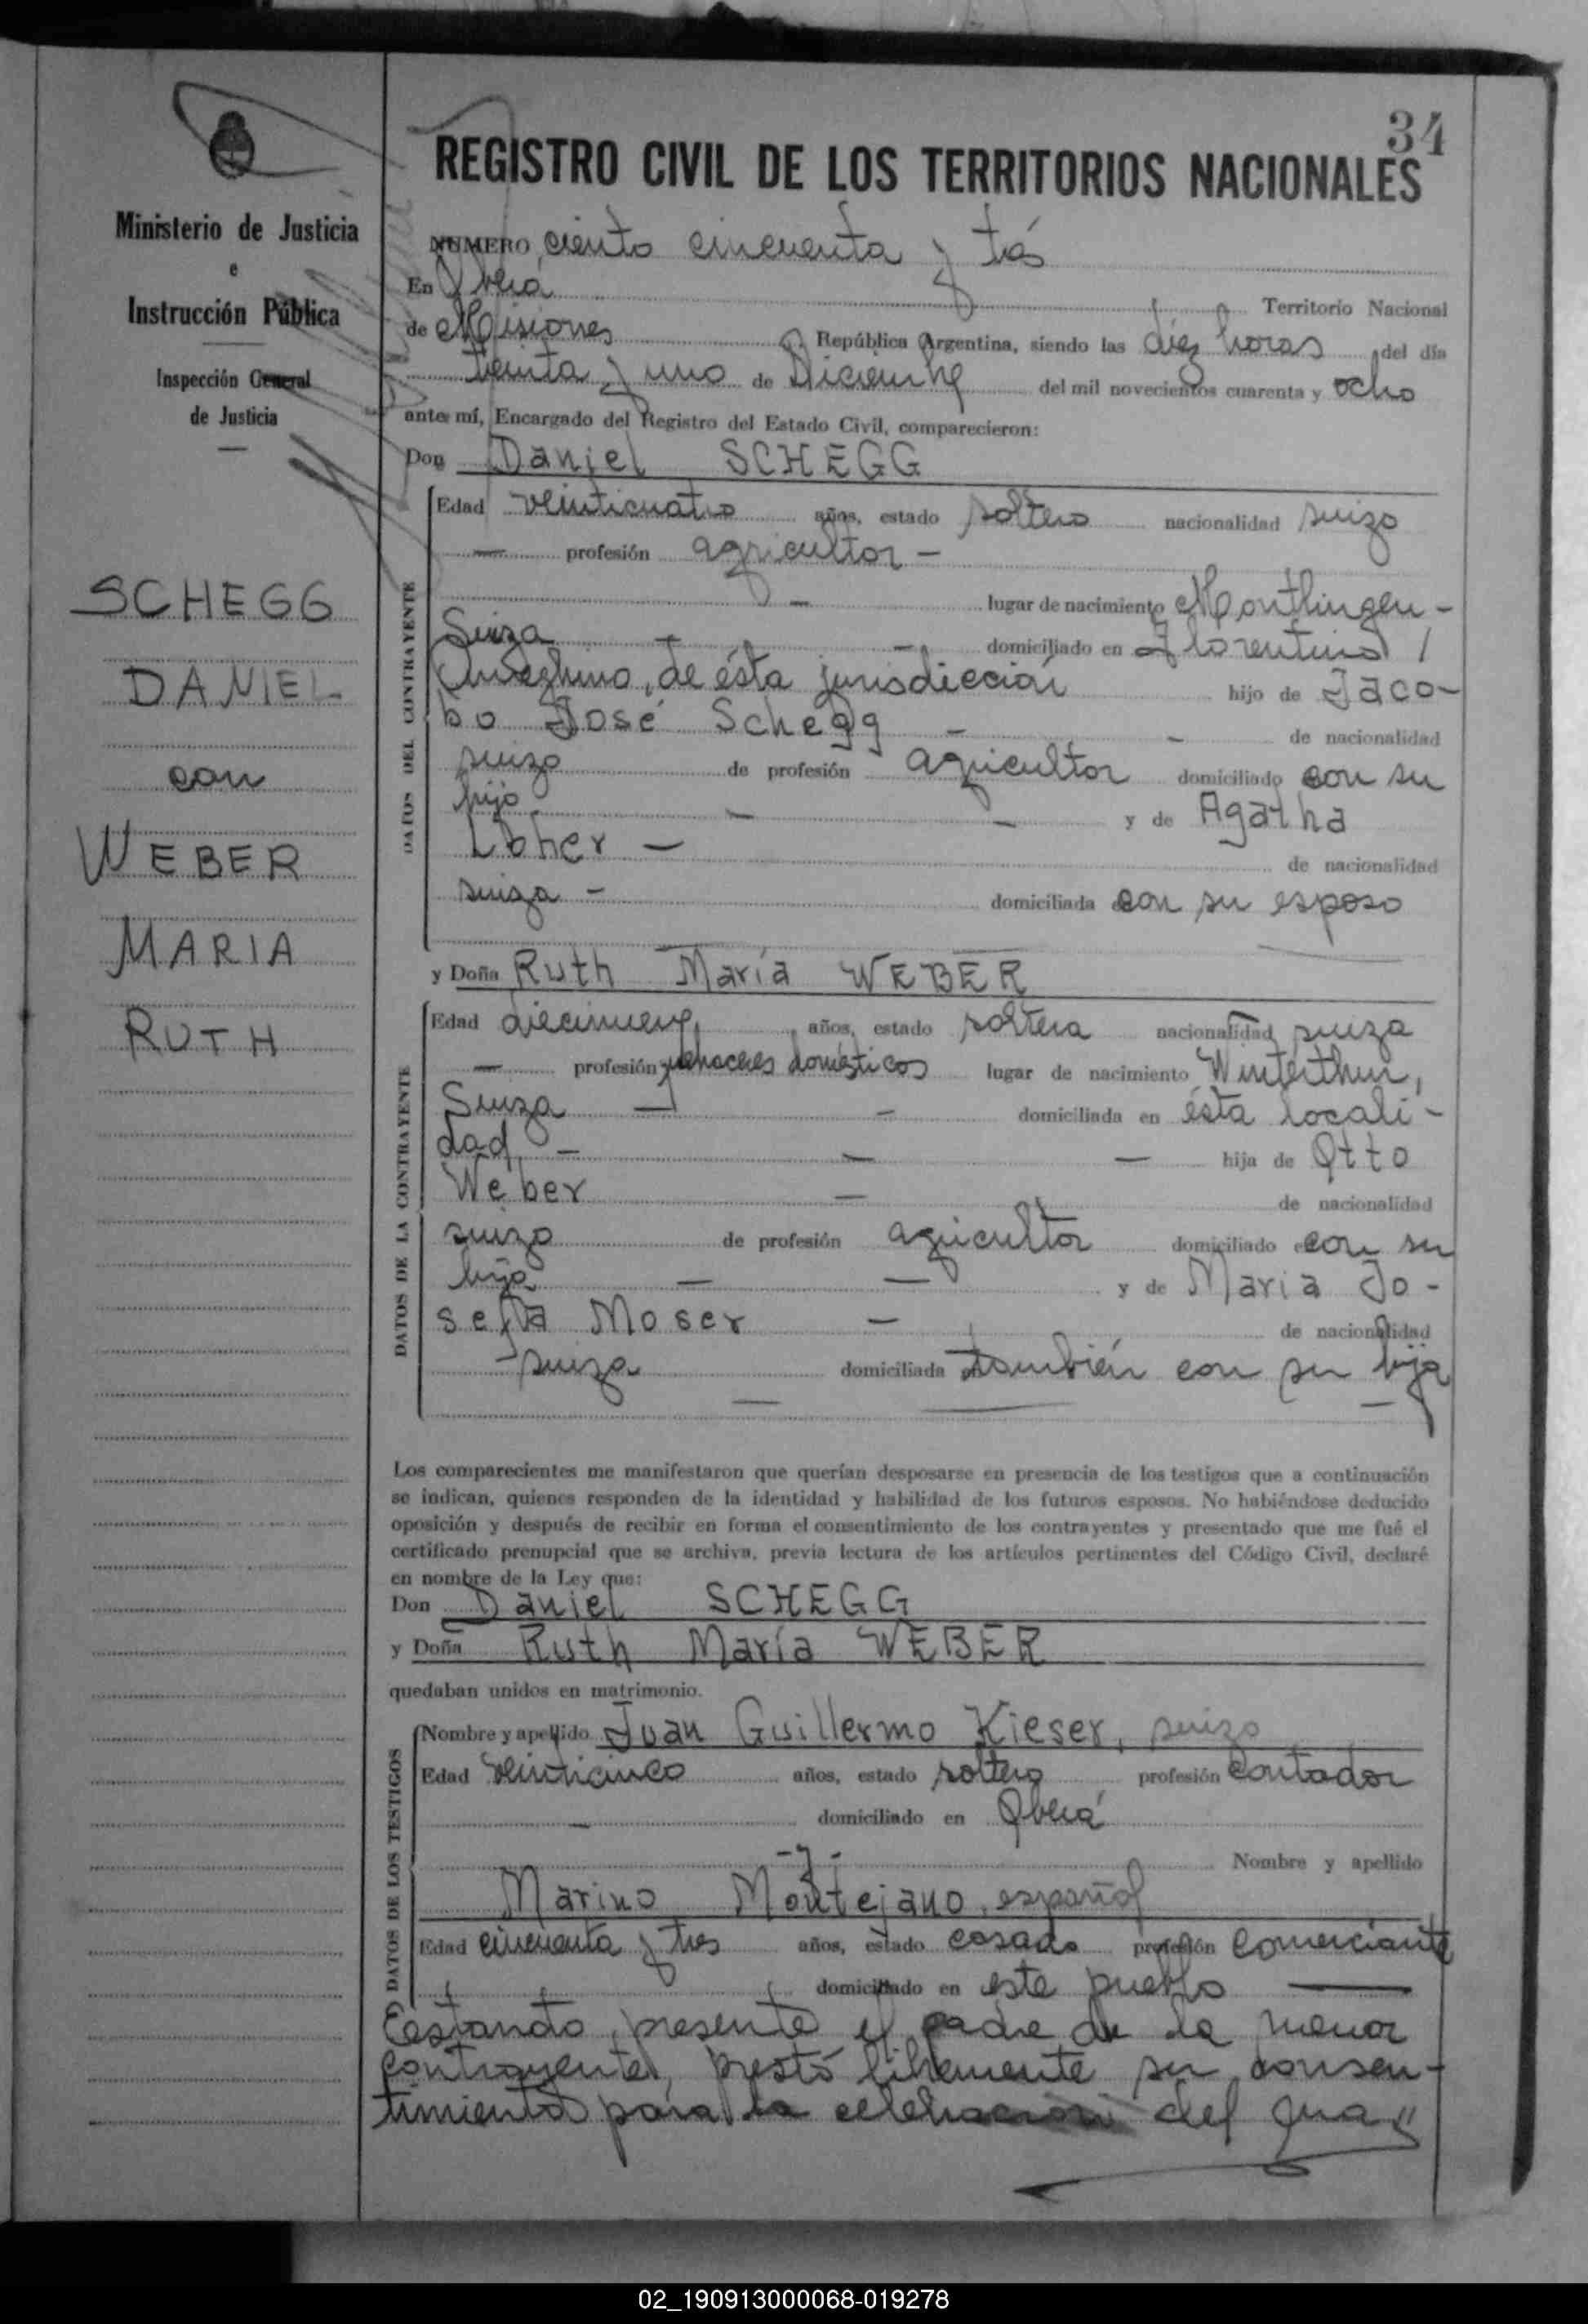 34
REGISTRO CIVIL DE LOS TERRITORIOS NACIONALES
Ministerio de Justicia
e
Instrucción Pública
Inspección General
de Justicia
SCHEGG
DANIEL
con
WEBER
MARIA
RUTH
NUMERO ciento cincuenta y tres
En Oberá Territorio Nacional
de Misiones República Argentina, siendo las diez horas del día
treinta y uno de Diciembre del mil novecientos cuarenta y ocho
ante mí, Encargado del Registro del Estado Civil, comparecieron:
Don Daniel SCHEGG
DATOS DEL CONTRAYENTE
Edad veinticuatro años, estado soltero nacionalidad suizo
— profesión agricultor —
— lugar de nacimiento Montlingen -
Suiza — — domiciliado en Florentino /
Ameghino, de ésta jurisdicción hijo de Jaco-
bo José Schegg — — de nacionalidad
suizo de profesión agricultor domiciliado con su
hijo — — y de Agatha
Löher — de nacionalidad
suiza — domiciliada con su esposo
y Doña Ruth María WEBER
DATOS DE LA CONTRAYENTE
Edad diecinueve años, estado soltera nacionalidad suiza
— profesión quehaceres domésticos lugar de nacimiento Winterthur,
Suiza — — domiciliada en ésta locali-
dad, — — — hija de Otto
Weber — de nacionalidad
suizo de profesión agricultor domiciliado con su
hija — — y de Maria Jo-
sefa Moser — de nacionalidad
suiza domiciliada también con su hija
— —
Los comparecientes me manifestaron que querían desposarse en presencia de los testigos que a continuación
se indican, quienes responden de la identidad y habilidad de los futuros esposos. No habiéndose deducido
oposición y después de recibir en forma el consentimiento de los contrayentes y presentado que me fué el
certificado prenupcial que se archiva, previa lectura de los artículos pertinentes del Código Civil, declaré
en nombre de la Ley que:
Don Daniel SCHEGG
y Doña Ruth María WEBER
quedaban unidos en matrimonio.
DATOS DE LOS TESTIGOS
Nombre y apellido Juan Guillermo Kieser, suizo
Edad veinticinco años, estado soltero profesión Contador
— domiciliado en Oberá
- y - Nombre y apellido
Marino Montejano, español
Edad cincuenta y tres años, estado casado profesión Comerciante
domiciliado en este pueblo —
estando presente el padre de la menor
contrayente, prestó libremente su consen-
timiento para la celebración del
02_190913000068-019278